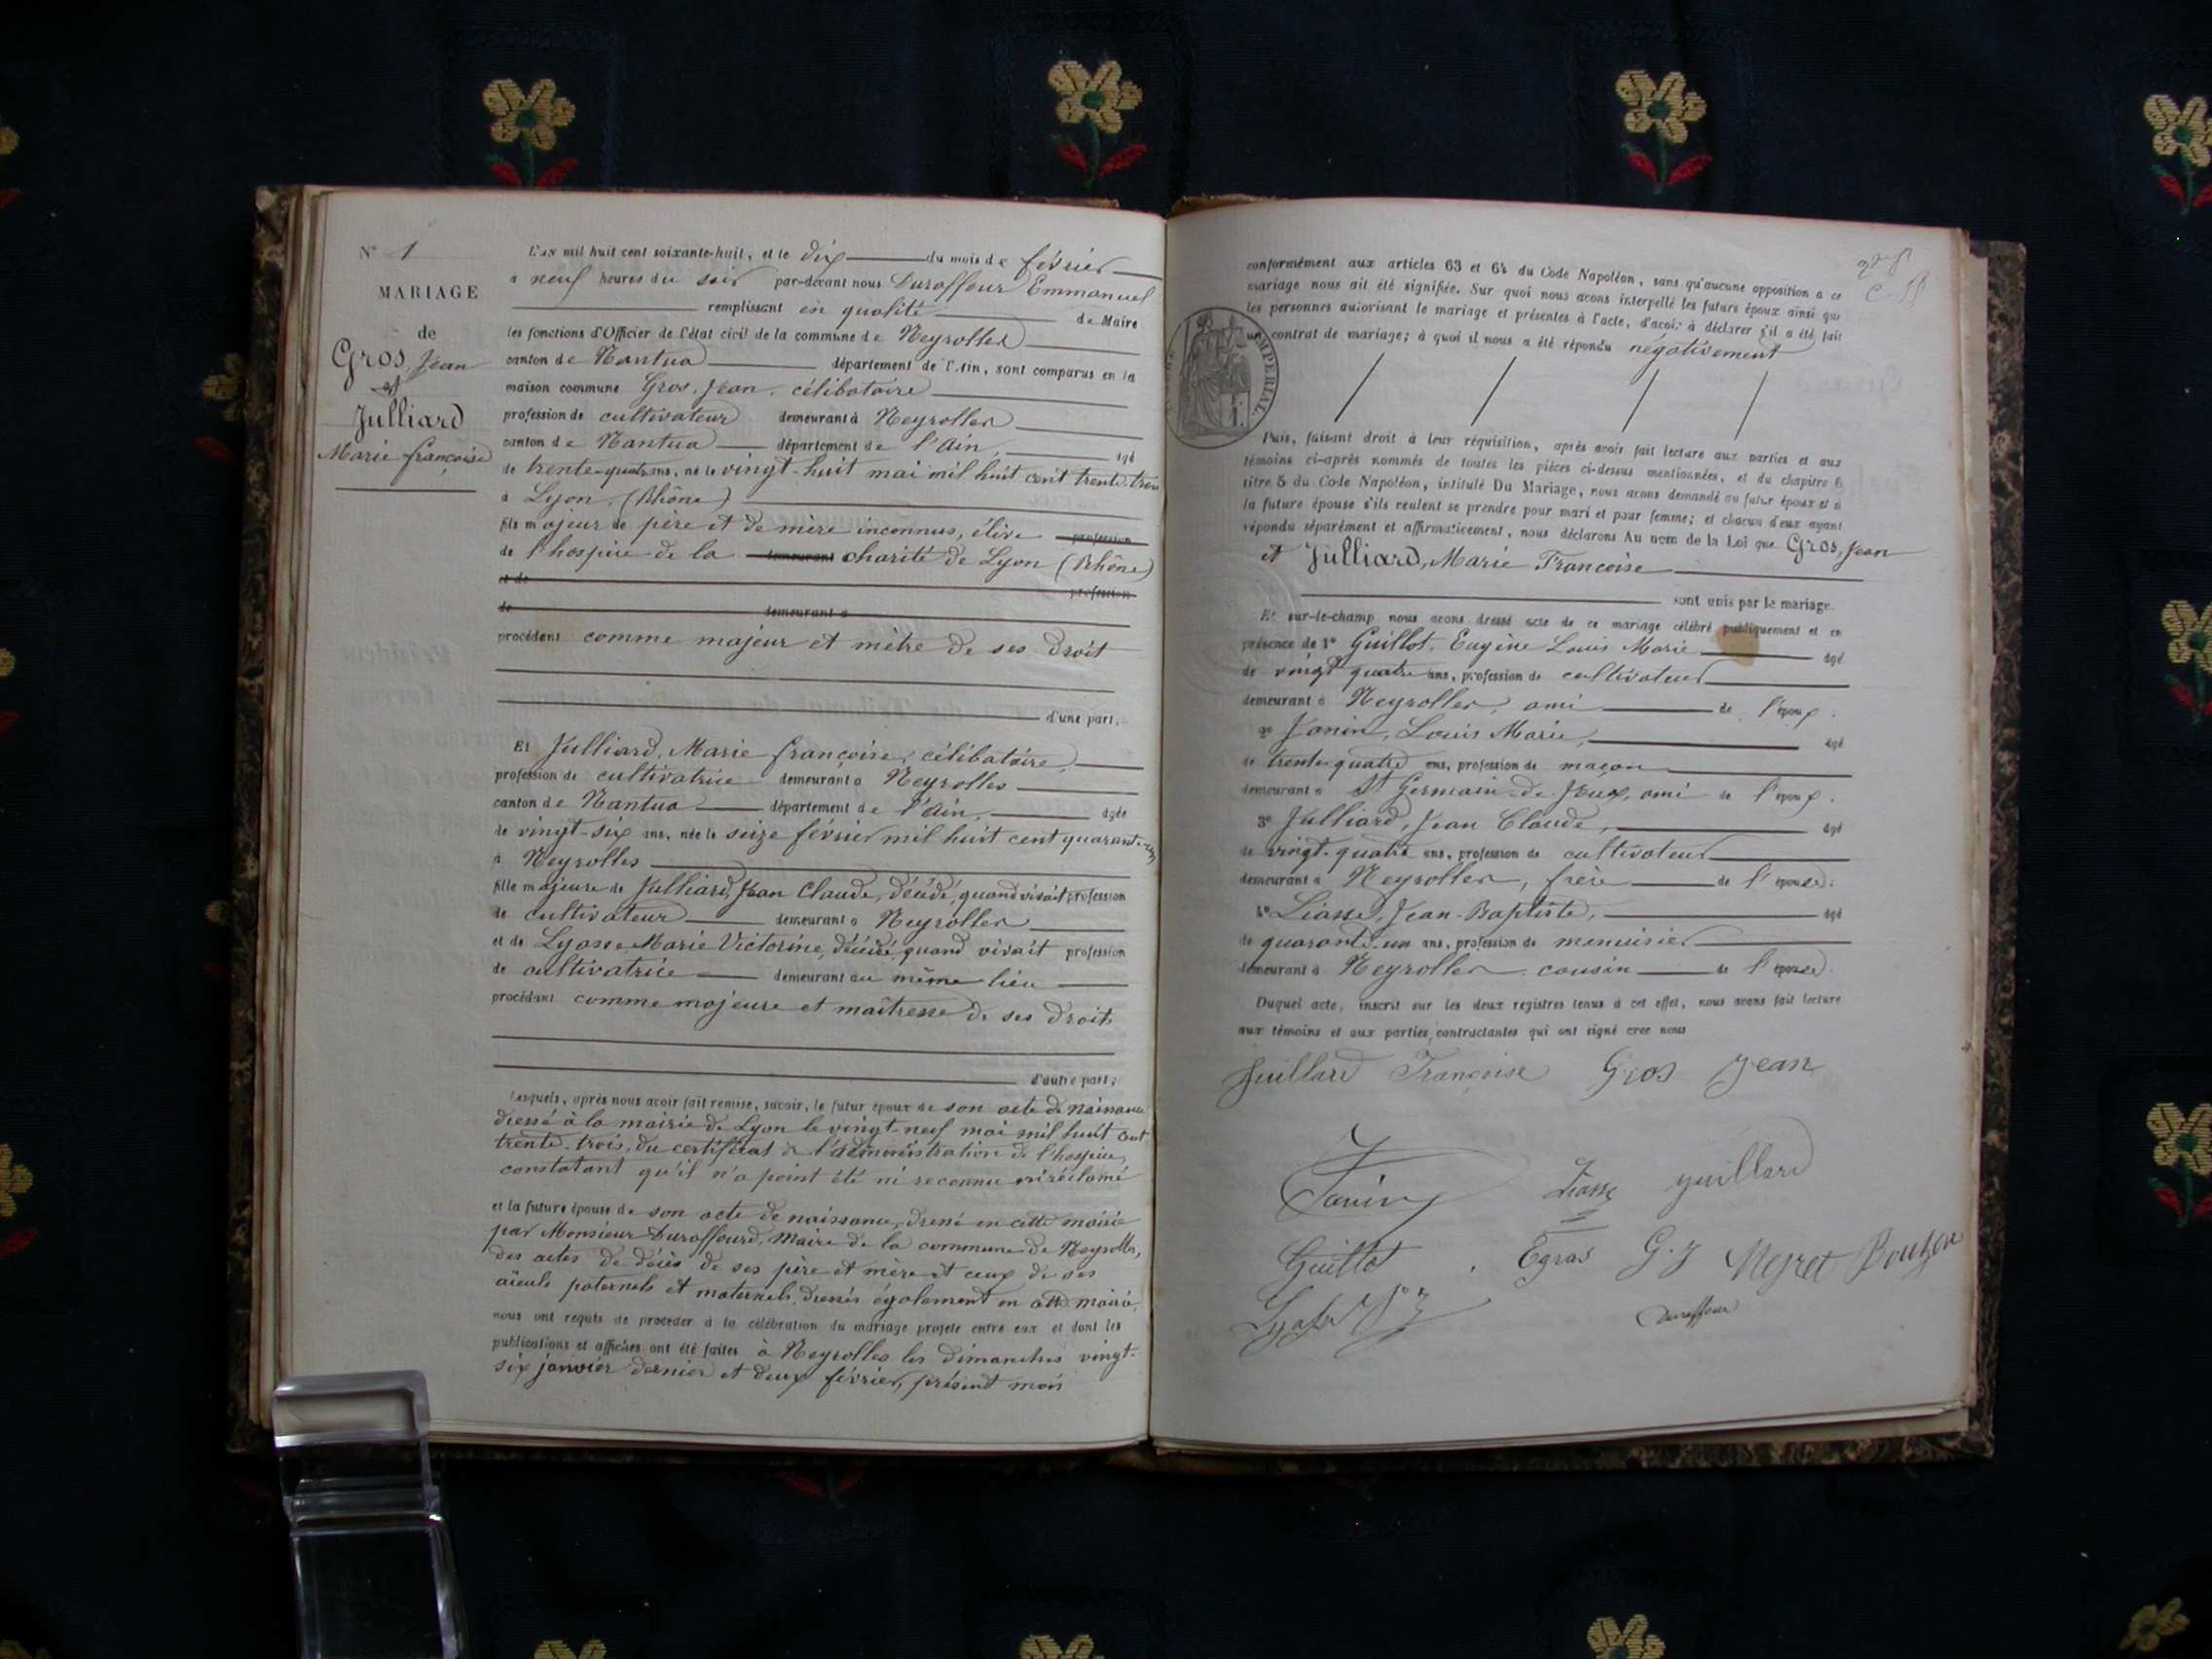 N° 1
MARIAGE
de
Gros, Jean
et
Julliard
Marie françoise
L'AN mil huit cent soixante-huit, et le dix du mois de février
à neuf heures du soir par-devant nous Duraffour Emmanuel
remplissant en qualité de Maire
les fonctions d'Officier de l'état civil de la commune de Neyrolles
canton de Nantua département de l'Ain, sont comparus en la
maison commune Gros, Jean, célibataire
profession de cultivateur demeurant à Neyrolles
canton de Nantua département de l'Ain, âgé
de trente-quatre ans, né le vingt-huit mai mil huit cent trente-trois
à Lyon, (Rhône)
fils majeur de père et de mère inconnus, élève profession
de l'hospice de la demeurant charité de Lyon (Rhône)
et de profession
de demeurant à
procédant comme majeur et mètre de ses droit
d'une part,
Et Julliard, Marie françoise, célibataire,
profession de cultivatrice demeurant à Neyrolles
canton de Nantua département de l'Ain, âgée
de vingt-six ans, née le seize février mil huit cent quarante-un
à Neyrolles
fille majeure de Julliard, Jean Claude, décédé, quand vivait profession
de cultivateur demeurant à Neyrolles
et de Lyasse Marie Victorine, décédé, quand vivait profession
de cultivatrice demeurant au même lieu
procédant comme majeure et maîtresse de ses droits
d'autre part;
Lesquels, après nous avoir fait remise, savoir, le futur époux de son acte de naissance
dressé à la mairie de Lyon le vingt-neuf mai mil huit cent
trente-trois, du certificat de l'administration de l'hospice,
constatant qu'il n'a point été ni reconnu ni réclamé
et la future épouse de son acte de naissance, dressé en cette mairie
par Monsieur Duraffourd, Maire de la commune de Neyrolles,
des actes de décès de ses père et mère et ceux de ses
aïeuls paternels et maternels, dressés également en cette mairie,
nous ont requis de procéder à la célébration du mariage projeté entre eux et dont les
publications et affiches ont été faites à Neyrolles les dimanches vingt-
six janvier dernier et deux février, présent mois
conformément aux articles 63 et 64 du Code Napoléon, sans qu'aucune opposition à ce
mariage nous ait été signifiée. Sur quoi nous avons interpellé les futurs époux ainsi que
les personnes autorisant le mariage et présentes à l'acte, d'avoir à déclarer s'il a été fait
un contrat de mariage; à quoi il nous a été répondu négativement
IMPERIAL
Puis, faisant droit à leur réquisition, après avoir fait lecture aux parties et aux
témoins ci-après nommés de toutes les pièces ci-dessus mentionnées, et du chapitre 6
titre 5 du Code Napoléon, intitulé Du Mariage, nous avons demandé au futur époux et à
la future épouse s'ils veulent se prendre pour mari et pour femme; et chacun d'eux ayant
répondu séparément et affirmativement, nous déclarons Au nom de la Loi que Gros, Jean
et Julliard, Marie Françoise
sont unis par le mariage.
Et sur-le-champ nous avons dressé acte de ce mariage célébré publiquement et en
présence de 1° Guillot, Eugène Louis Marie âgé
de vingt quatre ans, profession de cultivateur
demeurant à Neyrolles, ami de l'époux.
2° Janin, Louis Marie, âgé
de trente-quatre ans, profession de maçon
demeurant à St Germain-de-Joux, ami de l'époux.
3° Julliard, Jean Claude, âgé
de vingt-quatre ans, profession de cultivateur
demeurant à Neyrolles, frère de l'épouse.
4° Liasse, Jean-Baptiste, âgé
de quarante-un ans, profession de menuisier
demeurant à Neyrolles cousin de l'épouse.
Duquel acte, inscrit sur les deux registres tenus à cet effet, nous avons fait lecture
aux témoins et aux parties contractantes qui ont signé avec nous
Juillard Françoise Gros Jean
Janin Liasse Juillard
Guillot Egras G. J Neyret Bouzon
Duraffour